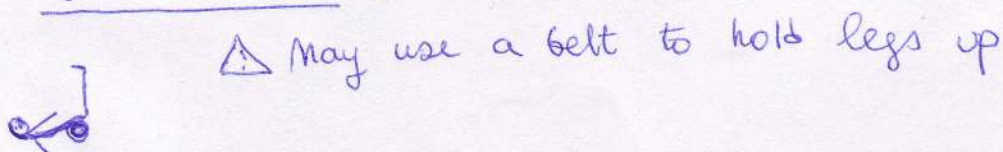 ⚠ May use a belt to hold legs up